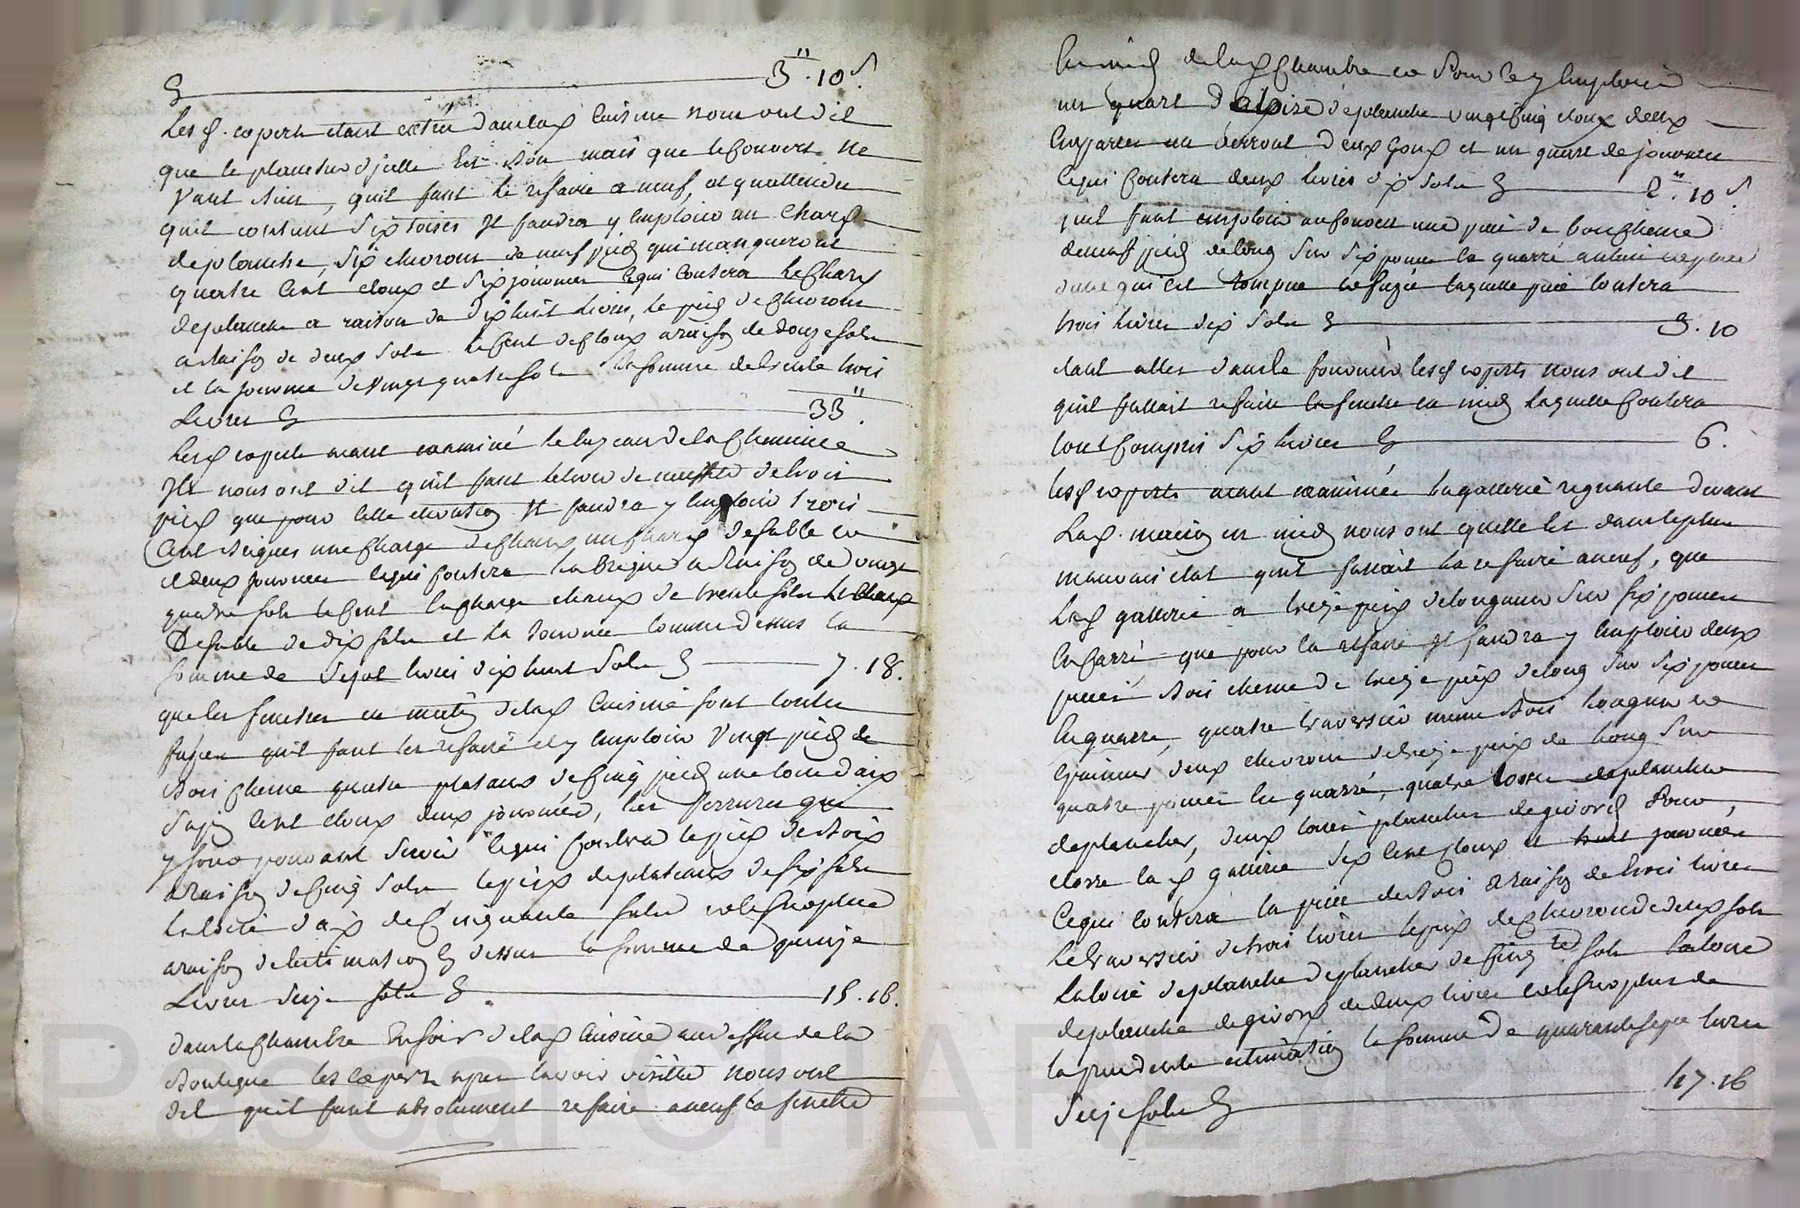 3" . 10 s
Les d. experts etant entrés dans lad. Cuisine nous ont dit
que le plancher d'jcelle Est Bon mais que le Couvert ne
Vaut Rien, qu'il faut le refaire a neuf, et quattendu
quil contient Six toises Jl faudra y Employer un Chard
deplanche, Six chevrons de neuf pieds qui manqueront
quatre Cent cloux et Six journées Cequi Coutera le Chard
deplanche a raison de Dixhuit Livres, le pied de chevrons
a Raison de deux Sols le Cent de Cloux a raison de douze Sols
et la journée de Vingt quatre Sols la Somme de trente trois
Livres 33"
Lesd. experts ayant examiné le tuyeau de la Cheminée
Jls nous ont dit qu'il faut de trois
pieds que pour Cette elevation Jl faudra y Employer trois
Cent Briques une Charge de Chaux un Chard de Sable
et deux journées Cequi Coutera la Brique a Raison de vingt
quatre Sols le Cent la Charge chaux de trente Sols le Chard
De Sable de dix Sols et la Journée Comme dessus la
Somme de Sept livres dixhuit Sols 7 . 18.
que les fenetres en de lad. Cuisine Sont toutes
qu'il faut les refaire et y Employer Vingt pieds de
Bois chene quatre plateaux de Cinq pieds une toise d'aix
Sapin Cent cloux deux journées, les ferrures qui
y Sont pouvant Servir Cequi Coutera le pied de Bois
a raison de Cinq Sols, le pied de plateaux de Six Sols
la toise d'aix de Cinquante Sols et le Surplus
a raison de lestimation Cy dessus la Somme de quinze
Livres Seize Sols 15 . 16.
dans la Chambre En Soir de lad. Cuisine au dessus de la
Boutique les experts apres lavoir visitée nous ont
dit qu'il faut absolument refaire a neuf la fenetre
En midy de lad. Chambre et pour Ce y Employer
un quart de toise de planche vingt Cinq cloux deux
un verrout deux Gons et un quart de journée
Cequi Coutera deux livres dix Sols 2" . 10 s
quil faut employer au Couvert une piece de bois Chene
de neuf pieds de long Sur Six pouces en quarré au lieu et place
d'une qui est rompue laquelle piece Coutera
trois livres dix Sols 3 . 10
etant alles dans le lesd. experts nous ont dit
qu'il fallait refaire la fenetre en midy laquelle Coutera
tout Compris Six livres 6 .
lesd. experts ayant examinée la gallerie regnante devant
Lad. maison en midy nous ont qu'elle Est dans le plus
mauvais etat qu'il fallait la refaire a neuf, que
Lad. gallerie a treize pieds de longueur Sur Six pouces
En Carré que pour la refaire Jl faudra y Employer deux
pieces Bois chene de treize pieds de long Sur Six pouces
En quarré, quatre traversiers meme Bois longueur et
deux chevrons de treize pieds de long Sur
quatre pouces En quarré, quatre toises de planche
deplancher, deux toises planches de givors Pour
clorre lad. gallerie Six Cent Cloux et huit journées
Cequi Coutera la piece de Bois a raison de trois livres
Le traversier de trois livres le pied de Chevron de deux Sols
La toise de planche deplancher de Cinq Sols la toise
de planche de givors de deux livres et le Surplus de
la precedente estimation la Somme de quarante Sept livres
Seize Sols 47 . 16